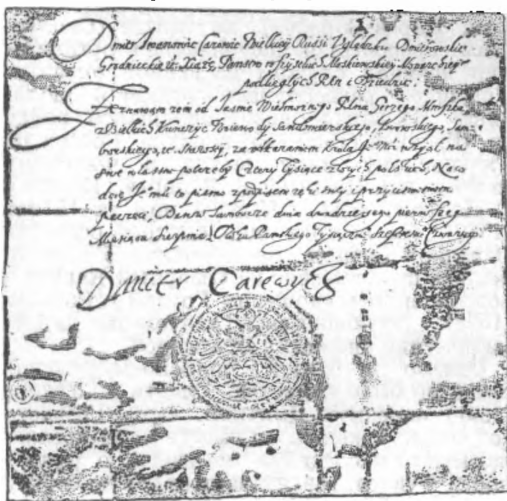 Dmitr Iwanowic Carowic Wielkiey Russi Uglęczki Dmitrowski
Grodnieckie etc. Xiążę, Państw wszystkich Moskiewskiey Monarchiey
podległych Pan i Dziedzic:
Zeznawam żem od Jaśnie Wielmożnego Pana Jerzego Mniszka
z Wielkich Kunczyc Woiewody Sendomierskiego, Lwowskiego, Sam-
borskiego, etc. Starosty, za Krola Je Mci wziął na
swe własne potrzeby Cztery Tysiące złotych polskich, Na co
daię Je mu to pismo z ręki y s przyciśnieniem
pieczęci, Dan w Samborze dnia dwudziestego pierwszego
Miesiąca Sierpnia Roku Pańskiego Tysiąc Szesset Czwartego
Dmitr Carewycz